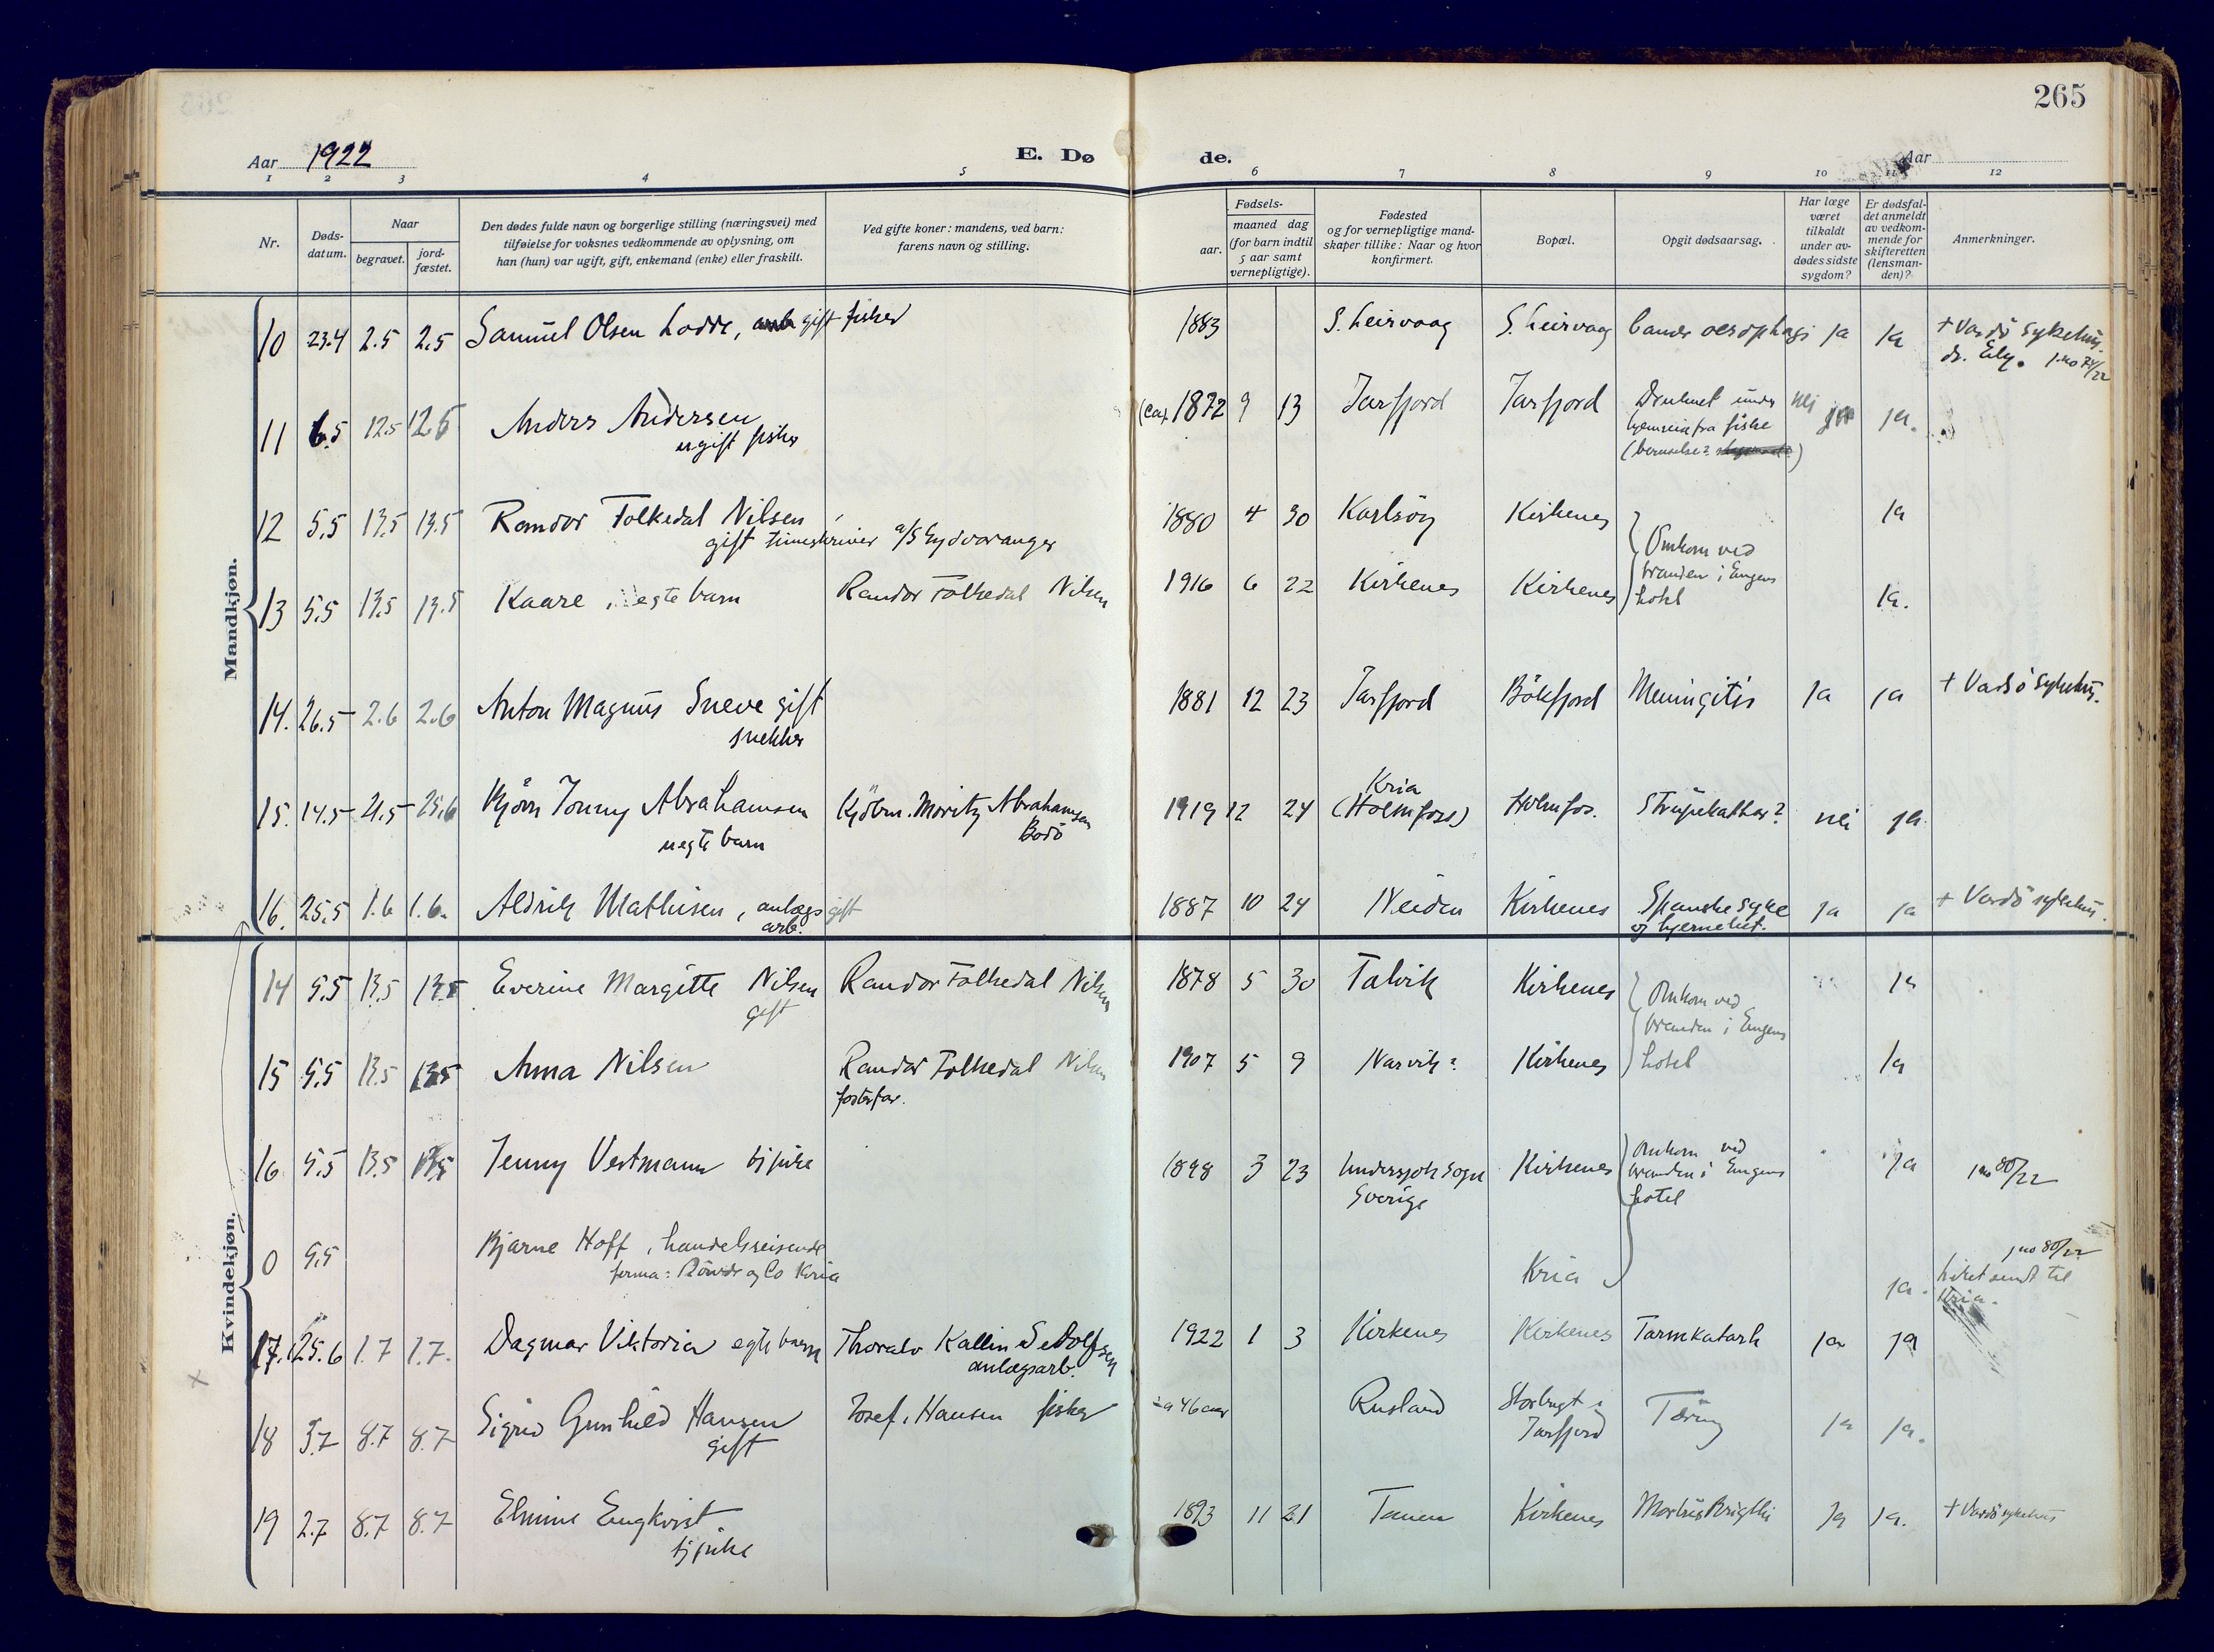 265
Aar 1922
E. Dø de.
Aar
1 2 3 4 5 6 7 8 9 10 11 12
Nr.
Døds-
datum.
Naar
begravet.
jord-
fæstet.
Den dødes fulde navn og borgerlige stilling (næringsvei) med
tilføielse for voksnes vedkommende av oplysning, om
han (hun) var ugift, gift, enkemand (enke) eller fraskilt.
Ved gifte koner: mandens, ved barn:
farens navn og stilling.
aar.
Fødsels-
maaned dag
(for barn indtil
5 aar samt
vernepligtige).
Fødested
og for vernepligtige mand-
skaper tillike: Naar og hvor
konfirmert.
Bopæl.
Opgit dødsaarsag.
Har læge
været
tilkaldt
under av-
dødes sidste
sygdom?
Er dødsfal-
det anmeldt
av vedkom-
mende for
skifteretten
(lensman-
den)?
Anmerkninger.
Mandkjøn.
10 23.4 2.5 2.5 Samuel Olsen Lodde, gift fisker 1883 S. Leirvaag S. Leirvaag Cancer oesophagi ja ja + Vardö sykehus.
dr. jno 74/22
11 6.5 12.5 12.5 Anders Andersen (ca) 1872 9 13 Jarfjord Jarfjord Druknet under nei ja.
ugift fisker hjemreise fra fiske
(beruselse?
12 5.5 13.5 13.5 Randor Folkedal Nilsen 1880 4 30 Karlsöy Kirkenes ja
gift timeskriver a/S Sydvaranger
Omkom ved
branden i Engens
hotel
13 5.5 13.5 13.5 Kaare, egte barn Randor Folkedal Nilsen 1916 6 22 Kirkenes Kirkenes ja.
14. 26.5 2.6 2.6 Anton Magnus Sneve gift 1881 12 23 Jarfjord Bökfjord Meningitis ja ja + Vadsö sykehus.
snekker
15. 14.5 21.5 25.6 Bjørn Jonny Abrahamsen Kjöbm. Moritz Abrahamsen 1919 12 24 Kria
(Holmfoss) Holmfos. Strupekatar? nei ja
uegte barn Bodö
16. 25.5 1.6 1.6. Aldrik Mathisen, anlægs gift 1887 10 24 Neiden Kirkenes Spanske syke ja ja + Vardö sykehus.
arb. og hjernebet.
Kvindekjøn.
14 5.5 13.5 13.5 Everine Margitte Nilsen Randor Folkedal Nilsen 1878 5 30 Talvik Kirkenes ja
gift
Omkom ved
branden i Engens
hotel
15 5.5 13.5 13.5 Anna Nilsen Randor Folkedal Nilsen 1907 5 9 Narvik? Kirkenes ja
fosterfar.
16 5.5 13.5 13.5 Jenny Vestmann tj pike 1898 3 23 Undersjok sogn Kirkenes Omkom ved ja jno 80/22
Sverige branden i Engens
hotel
0 5.5 Bjarne Hoff, handelsreisende Kria ja. jno 80/22
firma: og Co Kria Liket sendt til
Kria.
17. 25.6 1.7 1.7. Dagmar Viktoria egte barn Thoralv Kallin Sedolfsen 1922 1 3 Kirkenes Kirkenes Tarmkatarh ja ja
anlægsarb.
18 3.7 8.7 8.7 Sigrid Gunhild Hansen Josef. Hansen fisker ca 46 aar Rusland Storbugt i Tæring ja ja.
gift Jarfjord
19 2.7 8.7 8.7 Elmine Engkvist 1893 11 21 Tanen Kirkenes Morbus Brigthi ja ja. + Vardö sykehus
tj pike